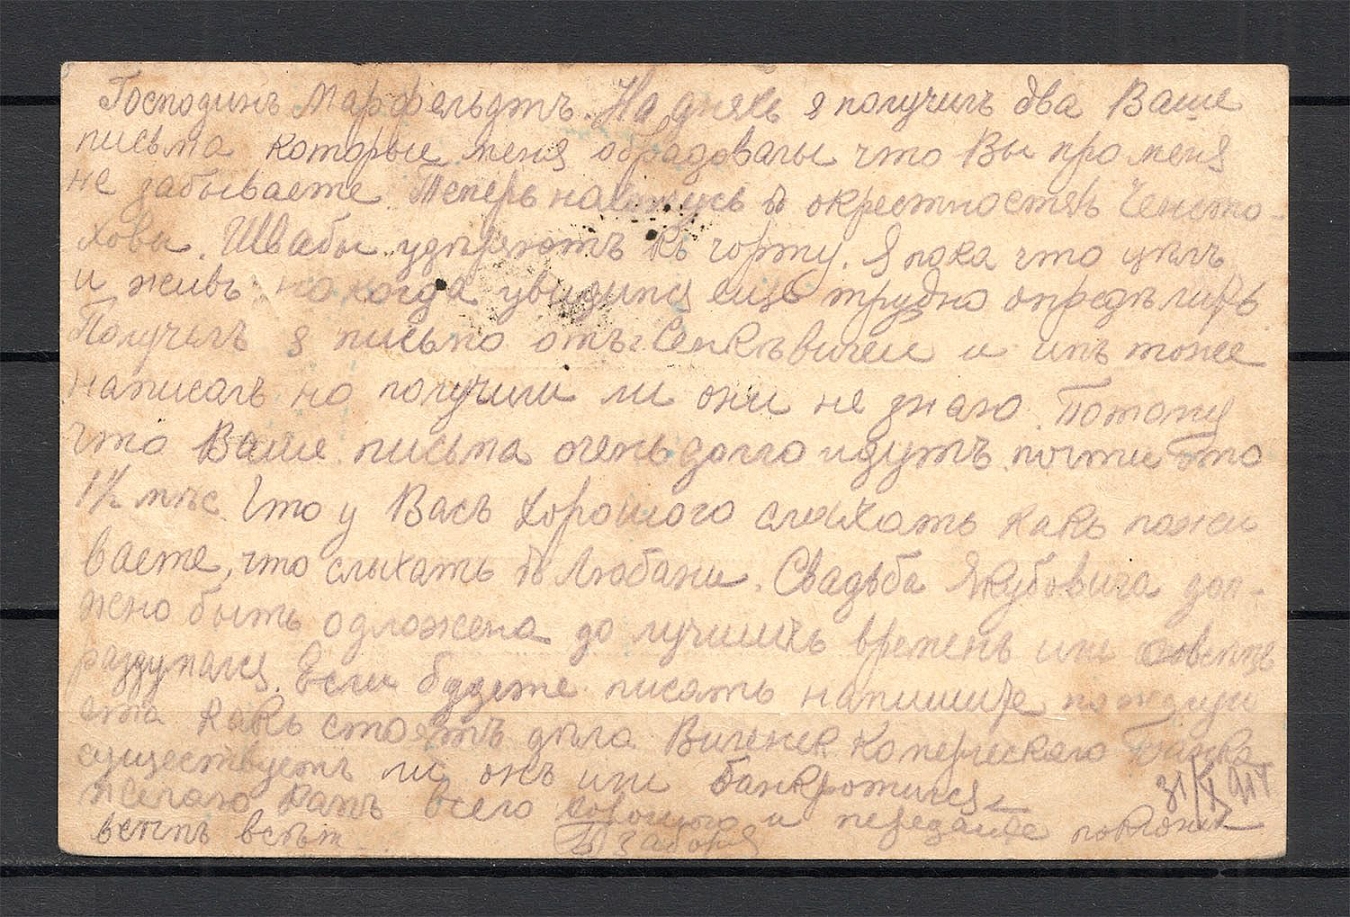 Господинъ Марфельдтъ. На дняхъ я получилъ два Ваше
письма которые меня обрадовалы что Вы про меня
не забываете. Теперь нахожусь въ окрестностяхъ Ченсто-
ховы. Швабы удираютъ къ чорту. Я пока что цѣлъ
и живъ но когда увидимся еще трудно опредѣлить.
Получилъ я письмо отъ и имъ тоже
написалъ но получили ли они не знаю. Потому
что Ваше письма очень долго идутъ почти что
1½ мѣс Что у Васъ хорошого слыхать какъ пожи
ваете, что слыхать въ Любани. Свадьба Якубовича дол-
жно быть одложена до лучшихъ временъ или совсѣмъ
раздумался. Если будете писать напишите пожалуй
ста какъ стоятъ дѣла Виленск Комерческаго Банка
существуетъ ли онъ или банкротился
желаю вамъ всего хорошого и передайте поклоны
всѣмъ всѣмъ.
31/X 914